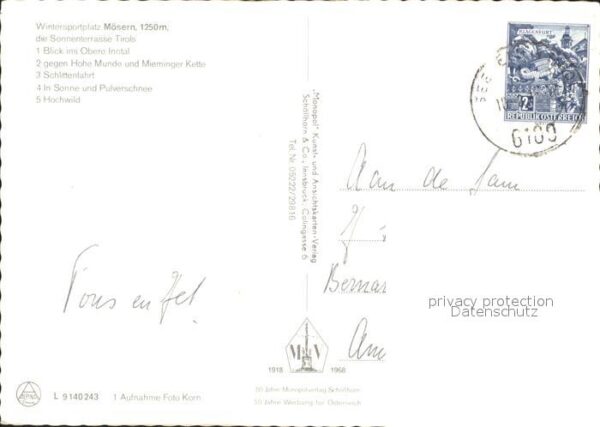 Wintersportplatz Mösern, 1250m,
die Sonnenterrasse Tirols
1 Blick ins Obere Inntal
2 gegen Hohe Munde und Mieminger Kette
3 Schlittenfahrt
4 In Sonne und Pulverschnee
5 Hochwild
"Monopol" Kunst- und Ansichtskarten-Verlag
Schöllhorn & Co., Innsbruck, Colingasse 6
Tel. Nr. 05222/29816
KLAGENFURT
2
REPUBLIK ÖSTERREICH
6100
Aan de fam
Bernar
Am
privacy protection
Datenschutz
1918 1968
50 Jahre Monopolverlag Schöllhorn
50 Jahre Werbung für Österreich
L 9140243 1 Aufnahme Foto Korn